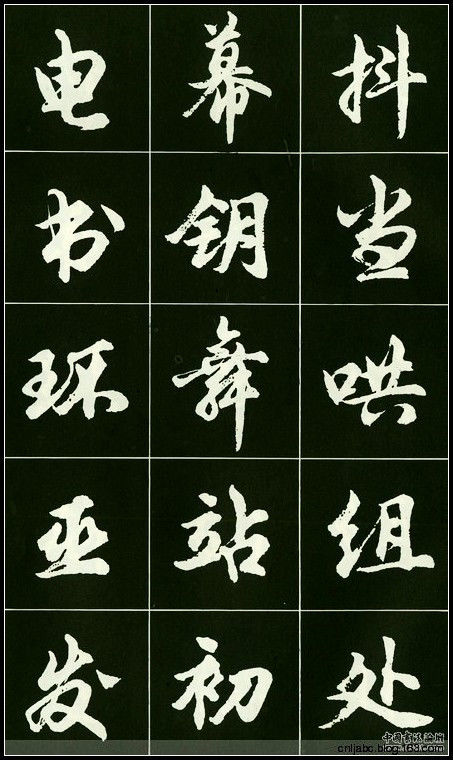 电 幕 抖
书 钥 当
环 舞 哄
亚 站 组
发 初 处
中国书法论坛
cnljabc.blog.163.com